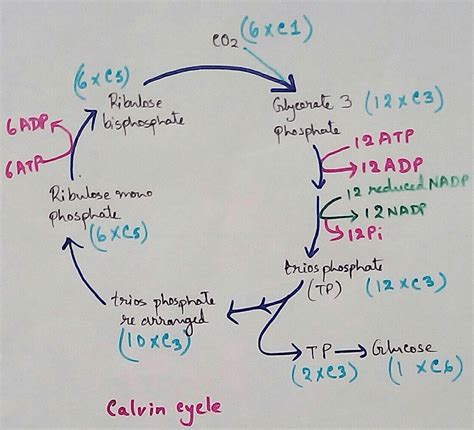 CO2 (6×C1)
(6×C5)
Ribulose
bisphosphate
Glycerate 3 (12×C3)
phosphate
6ADP
6ATP
12ATP
12ADP
12 reduced NADP
12NADP
12Pi
Ribulose mono
phosphate
(6×C5)
trios phosphate
(TP) (12×C3)
trios phosphate
re arranged
(10×C3)
TP → Glucose
(2×C3) (1×C6)
Calvin cycle